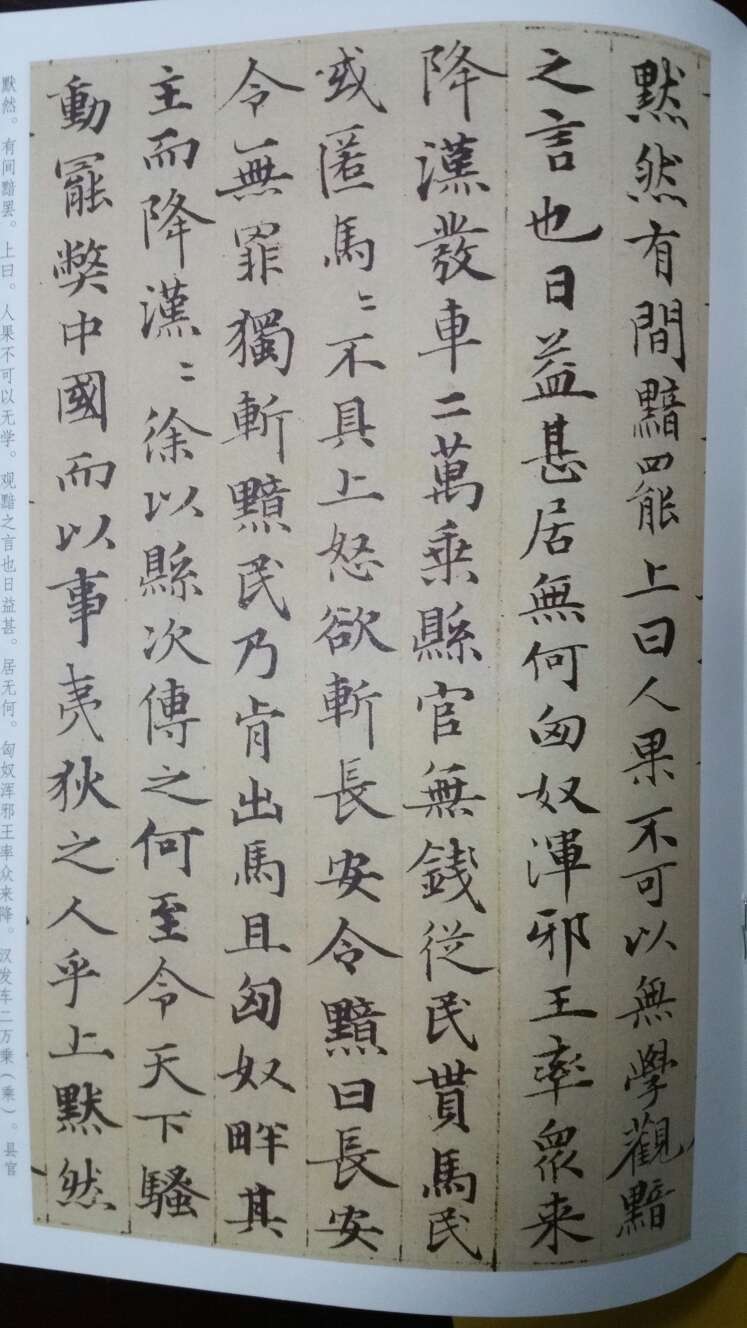 默然有間黯罷上曰人果不可以無學觀黯
之言也日益甚居無何匈奴渾邪王率衆来
降漢發車二萬乗縣官無錢從民貰馬民
或匿馬〻不具上怒欲斬長安令黯曰長安
令無罪獨斬黯民乃肯出馬且匈奴畔其
主而降漢〻徐以縣次傳之何至令天下騷
動罷弊中國而以事夷狄之人乎上默然
默然。有间黯罢。上曰。人果不可以无学。观黯之言也日益甚。居无何。匈奴浑邪王率众来降。汉发车二万乗(乘)。县官